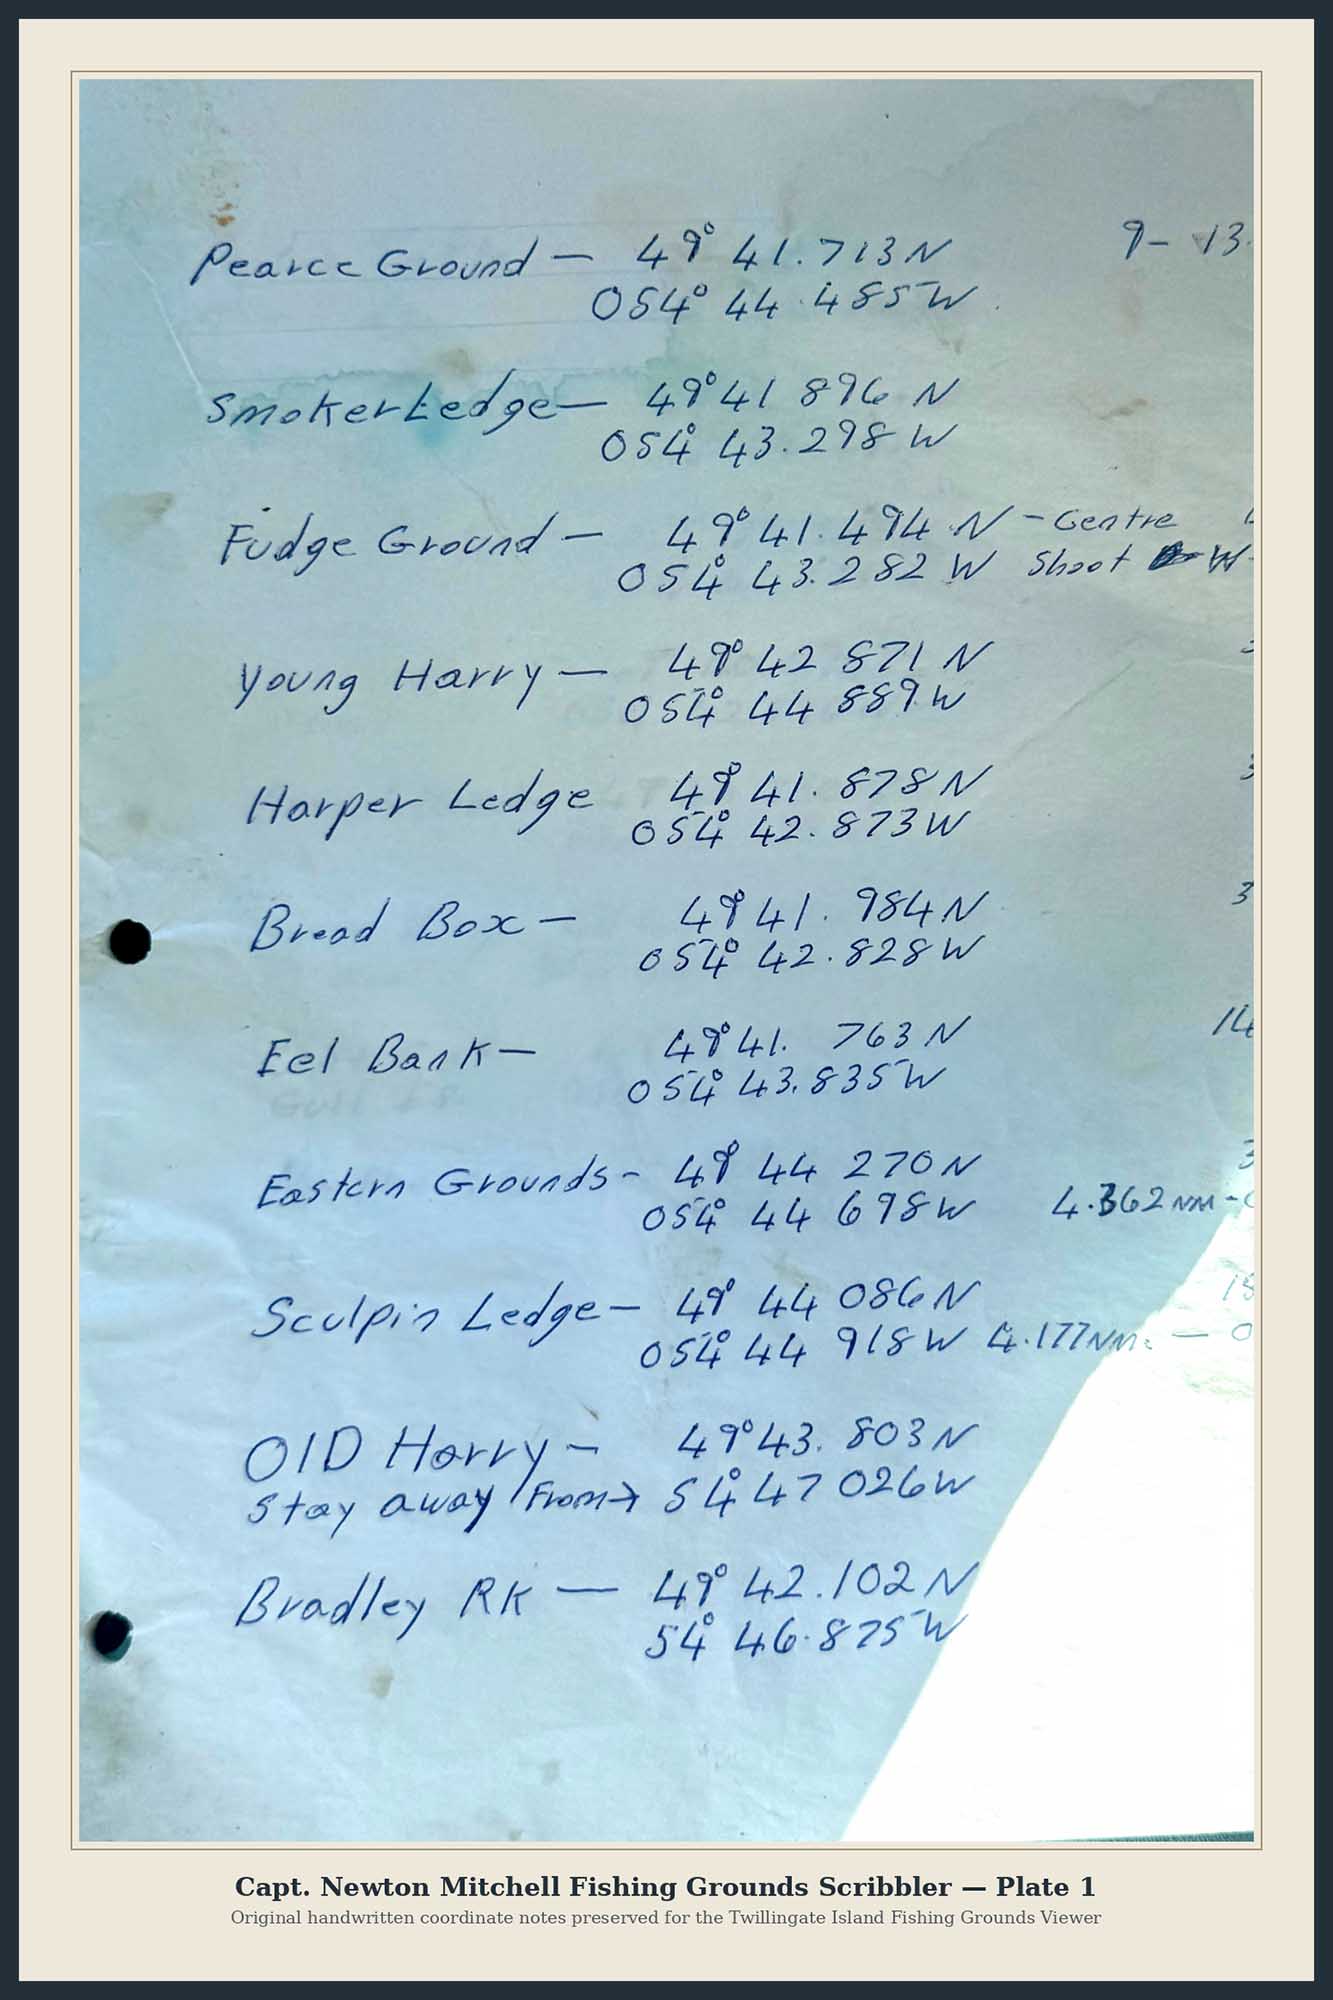 Pearce Ground — 49° 41.713 N 9- 13.
054° 44.485 W.
Smoker Ledge — 49° 41 896 N
054° 43.298 W
Fudge Ground — 49° 41.494 N - Centre
054° 43.282 W Shoot W-
Young Harry — 49° 42 871 N
054° 44 889 W
Harper Ledge 49° 41. 878 N
054° 42. 873 W
Bread Box — 49° 41. 984 N
054° 42.828 W
Eel Bank — 49° 41. 763 N 14
054° 43.835 W
Eastern Grounds - 49° 44 270 N
054° 44 698 W 4.362 NM -
Sculpin Ledge — 49° 44 086 N
054° 44 918 W 4.177 NM. —
OlD Harry — 49° 43. 803 N
Stay away From → 54° 47 026 W
Bradley RK — 49° 42.102 N
54° 46.875 W
Capt. Newton Mitchell Fishing Grounds Scribbler — Plate 1
Original handwritten coordinate notes preserved for the Twillingate Island Fishing Grounds Viewer